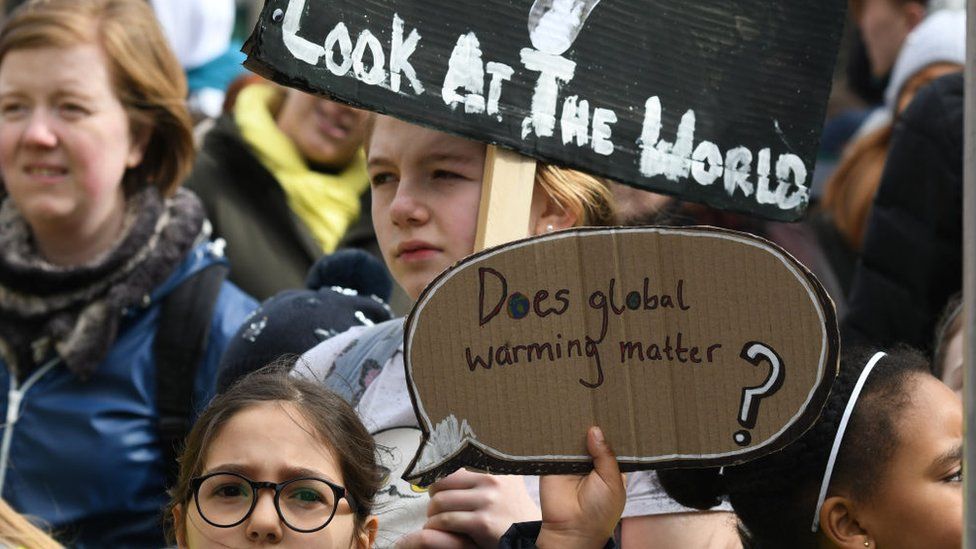 LOOK AT THE WORLD
Does global
warming matter
?